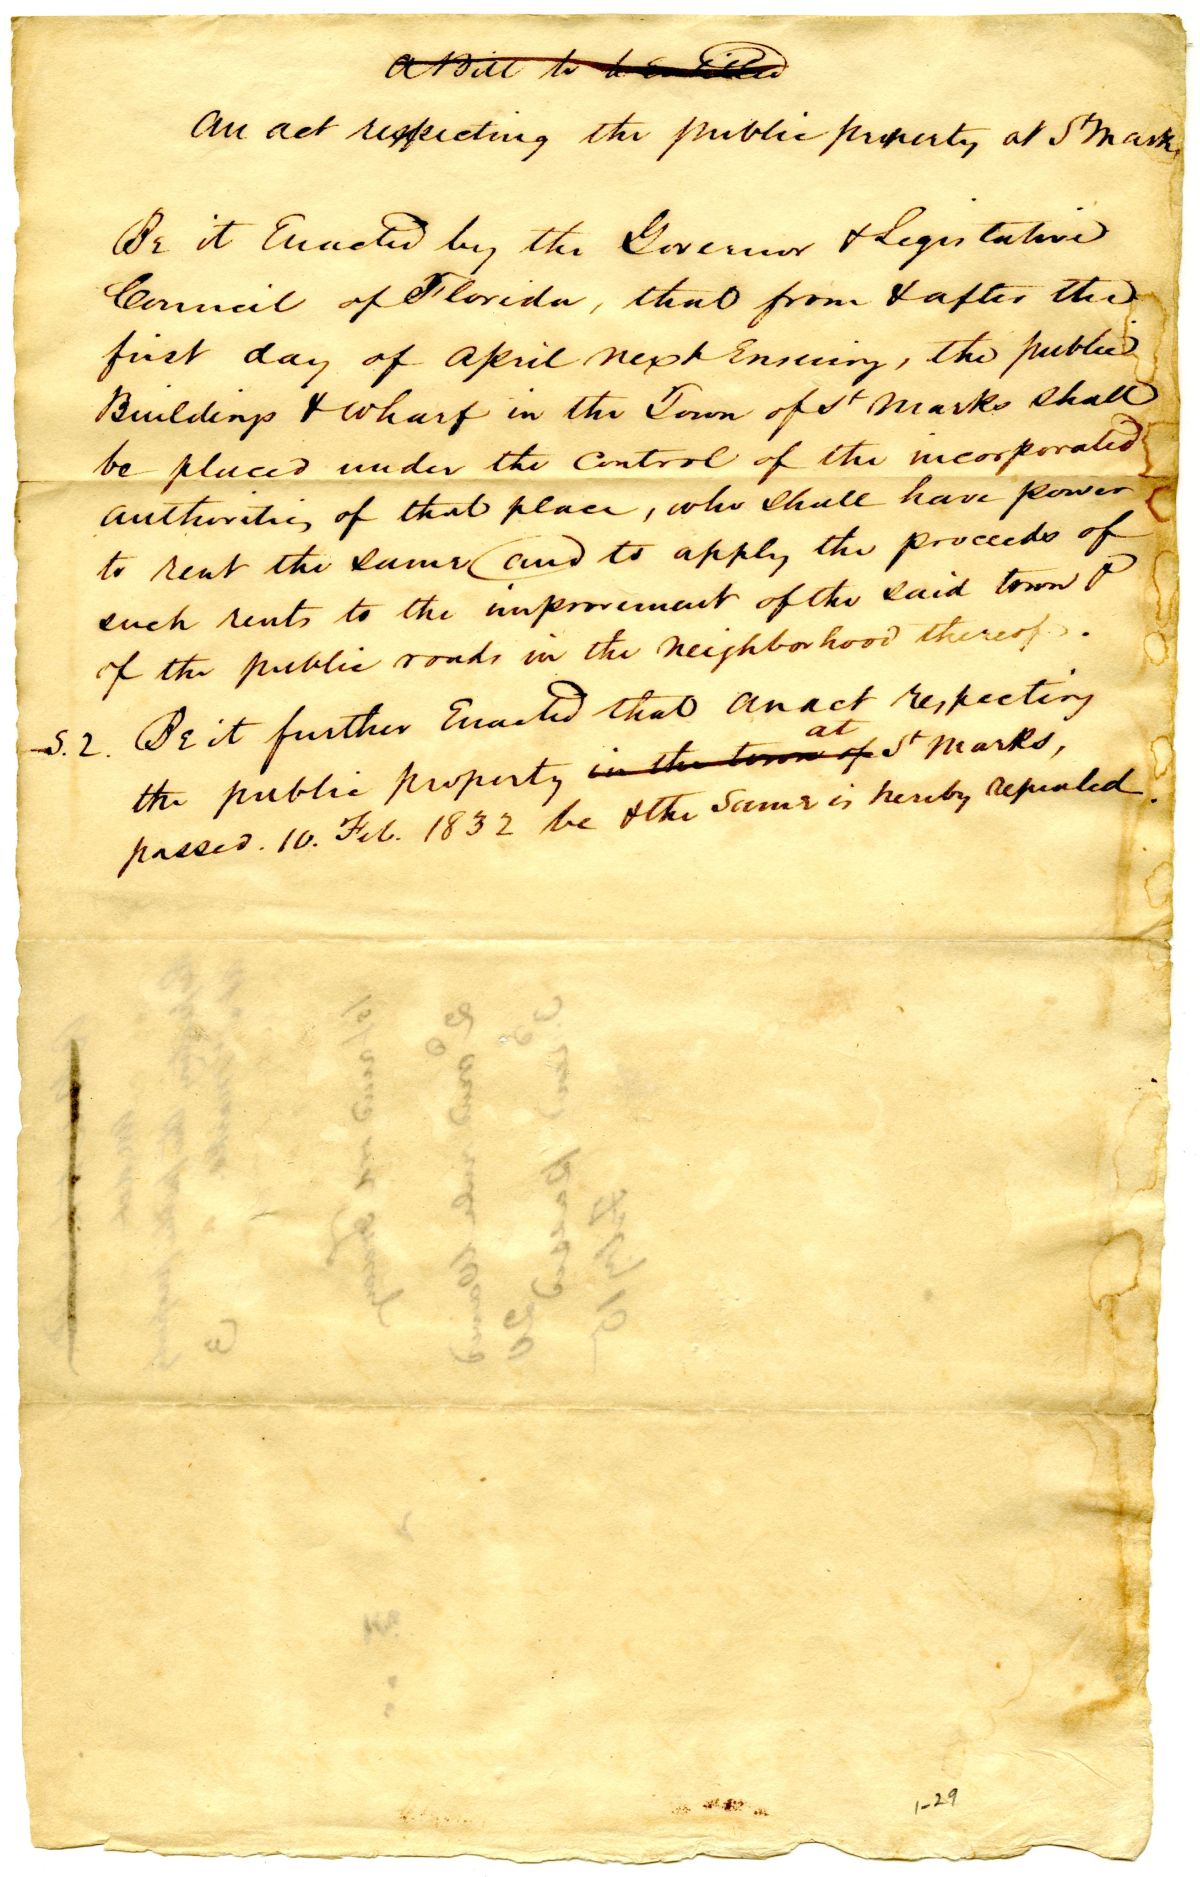 A Bill to be Entitled
An act respecting the public property at St Marks
Be it Enacted by the Governor & Legislative
Council of Florida, that from & after the
first day of April next Ensuing, the public
Buildings & Wharf in the Town of St Marks shall
be placed under the control of the incorporated
authorities of that place, who shall have power
to rent the same and to apply the proceeds of
such rents to the improvement of the said town &
of the public roads in the neighborhood thereof.
S. 2. Be it further Enacted that an act respecting
the public property in the town of at St Marks,
passed. 10. Feb. 1832 be & the same is hereby repealed.
1-29